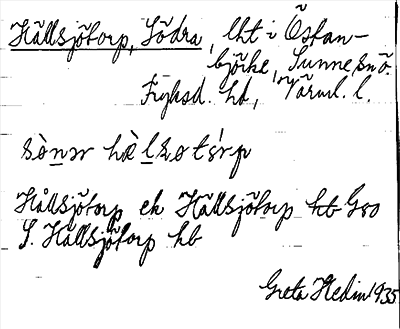 Hällsjötorp, Södra, lht i Östan-
björke, Sunne snö.
Fryksd. hd, Värml. l.
sònər hæ̀lsøtsrp
Hällsjötorp ek Hällsjötorp hb G80
S. Hällsjötorp hb
Greta Hedin 1935